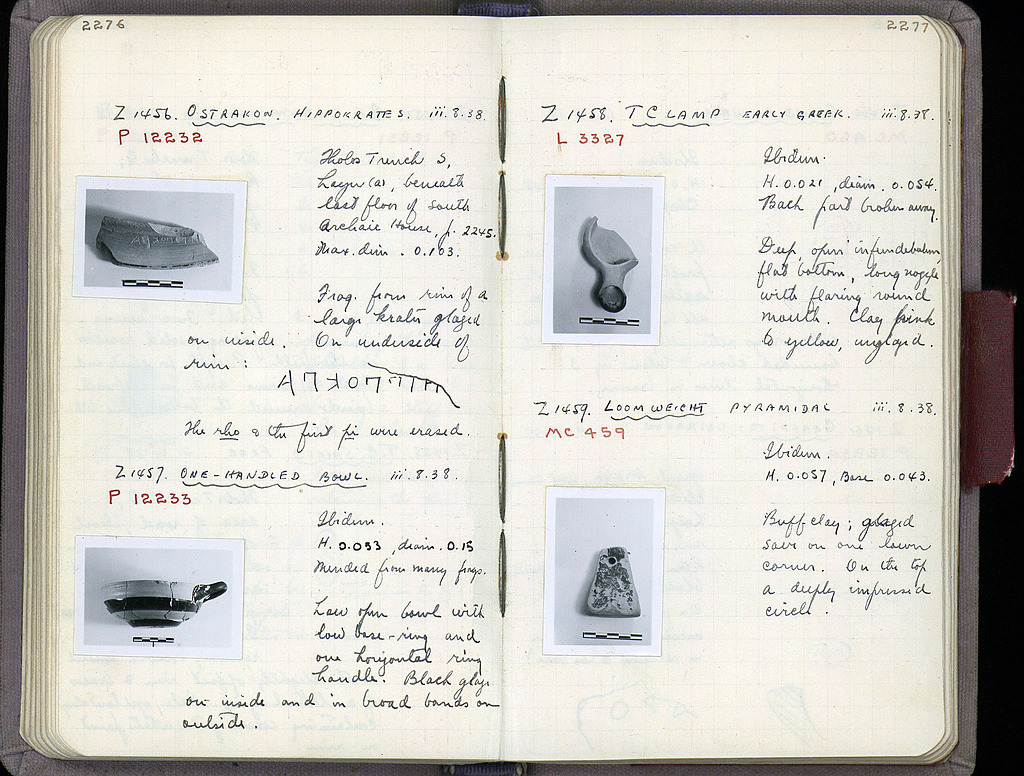 2276
Z 1456. OSTRAKON. HIPPOKRATES. iii.8.38.
P 12232
Tholos Trench S,
Layer (a), beneath
last floor of South
Archaic House, p. 2245.
Max. dim. 0.103.
Frag. from rim of a
large krater glazed
on inside. On underside of
rim:
The rho & the first pi were erased.
Z 1457. ONE-HANDLED BOWL. iii.8.38.
P 12233
Ibidem.
H. 0.053, diam. 0.15
Mended from many frags.
Low open bowl with
low base-ring and
one horizontal ring
handle. Black glaze
on inside and in broad bands on
outside.
2277
Z 1458. TC LAMP EARLY GREEK. iii.8.38.
L 3327
Ibidem.
H. 0.021, diam. 0.054.
Back part broken away.
Deep, open infundibulum,
flat bottom, long nozzle
with flaring round
mouth. Clay pink
to yellow, unglazed.
Z 1459. LOOMWEIGHT PYRAMIDAL iii.8.38.
MC 459
Ibidem.
H. 0.057, Base 0.043.
Buff clay; glazed
save on one lower
corner. On the top
a deeply impressed
circle.